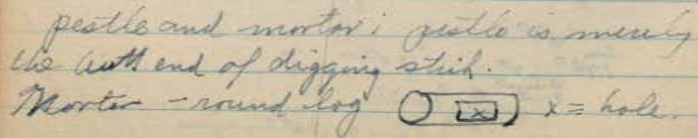 pestle and mortar; pestle is merely
the butt end of digging stick.
Mortar - round log x x = hole.